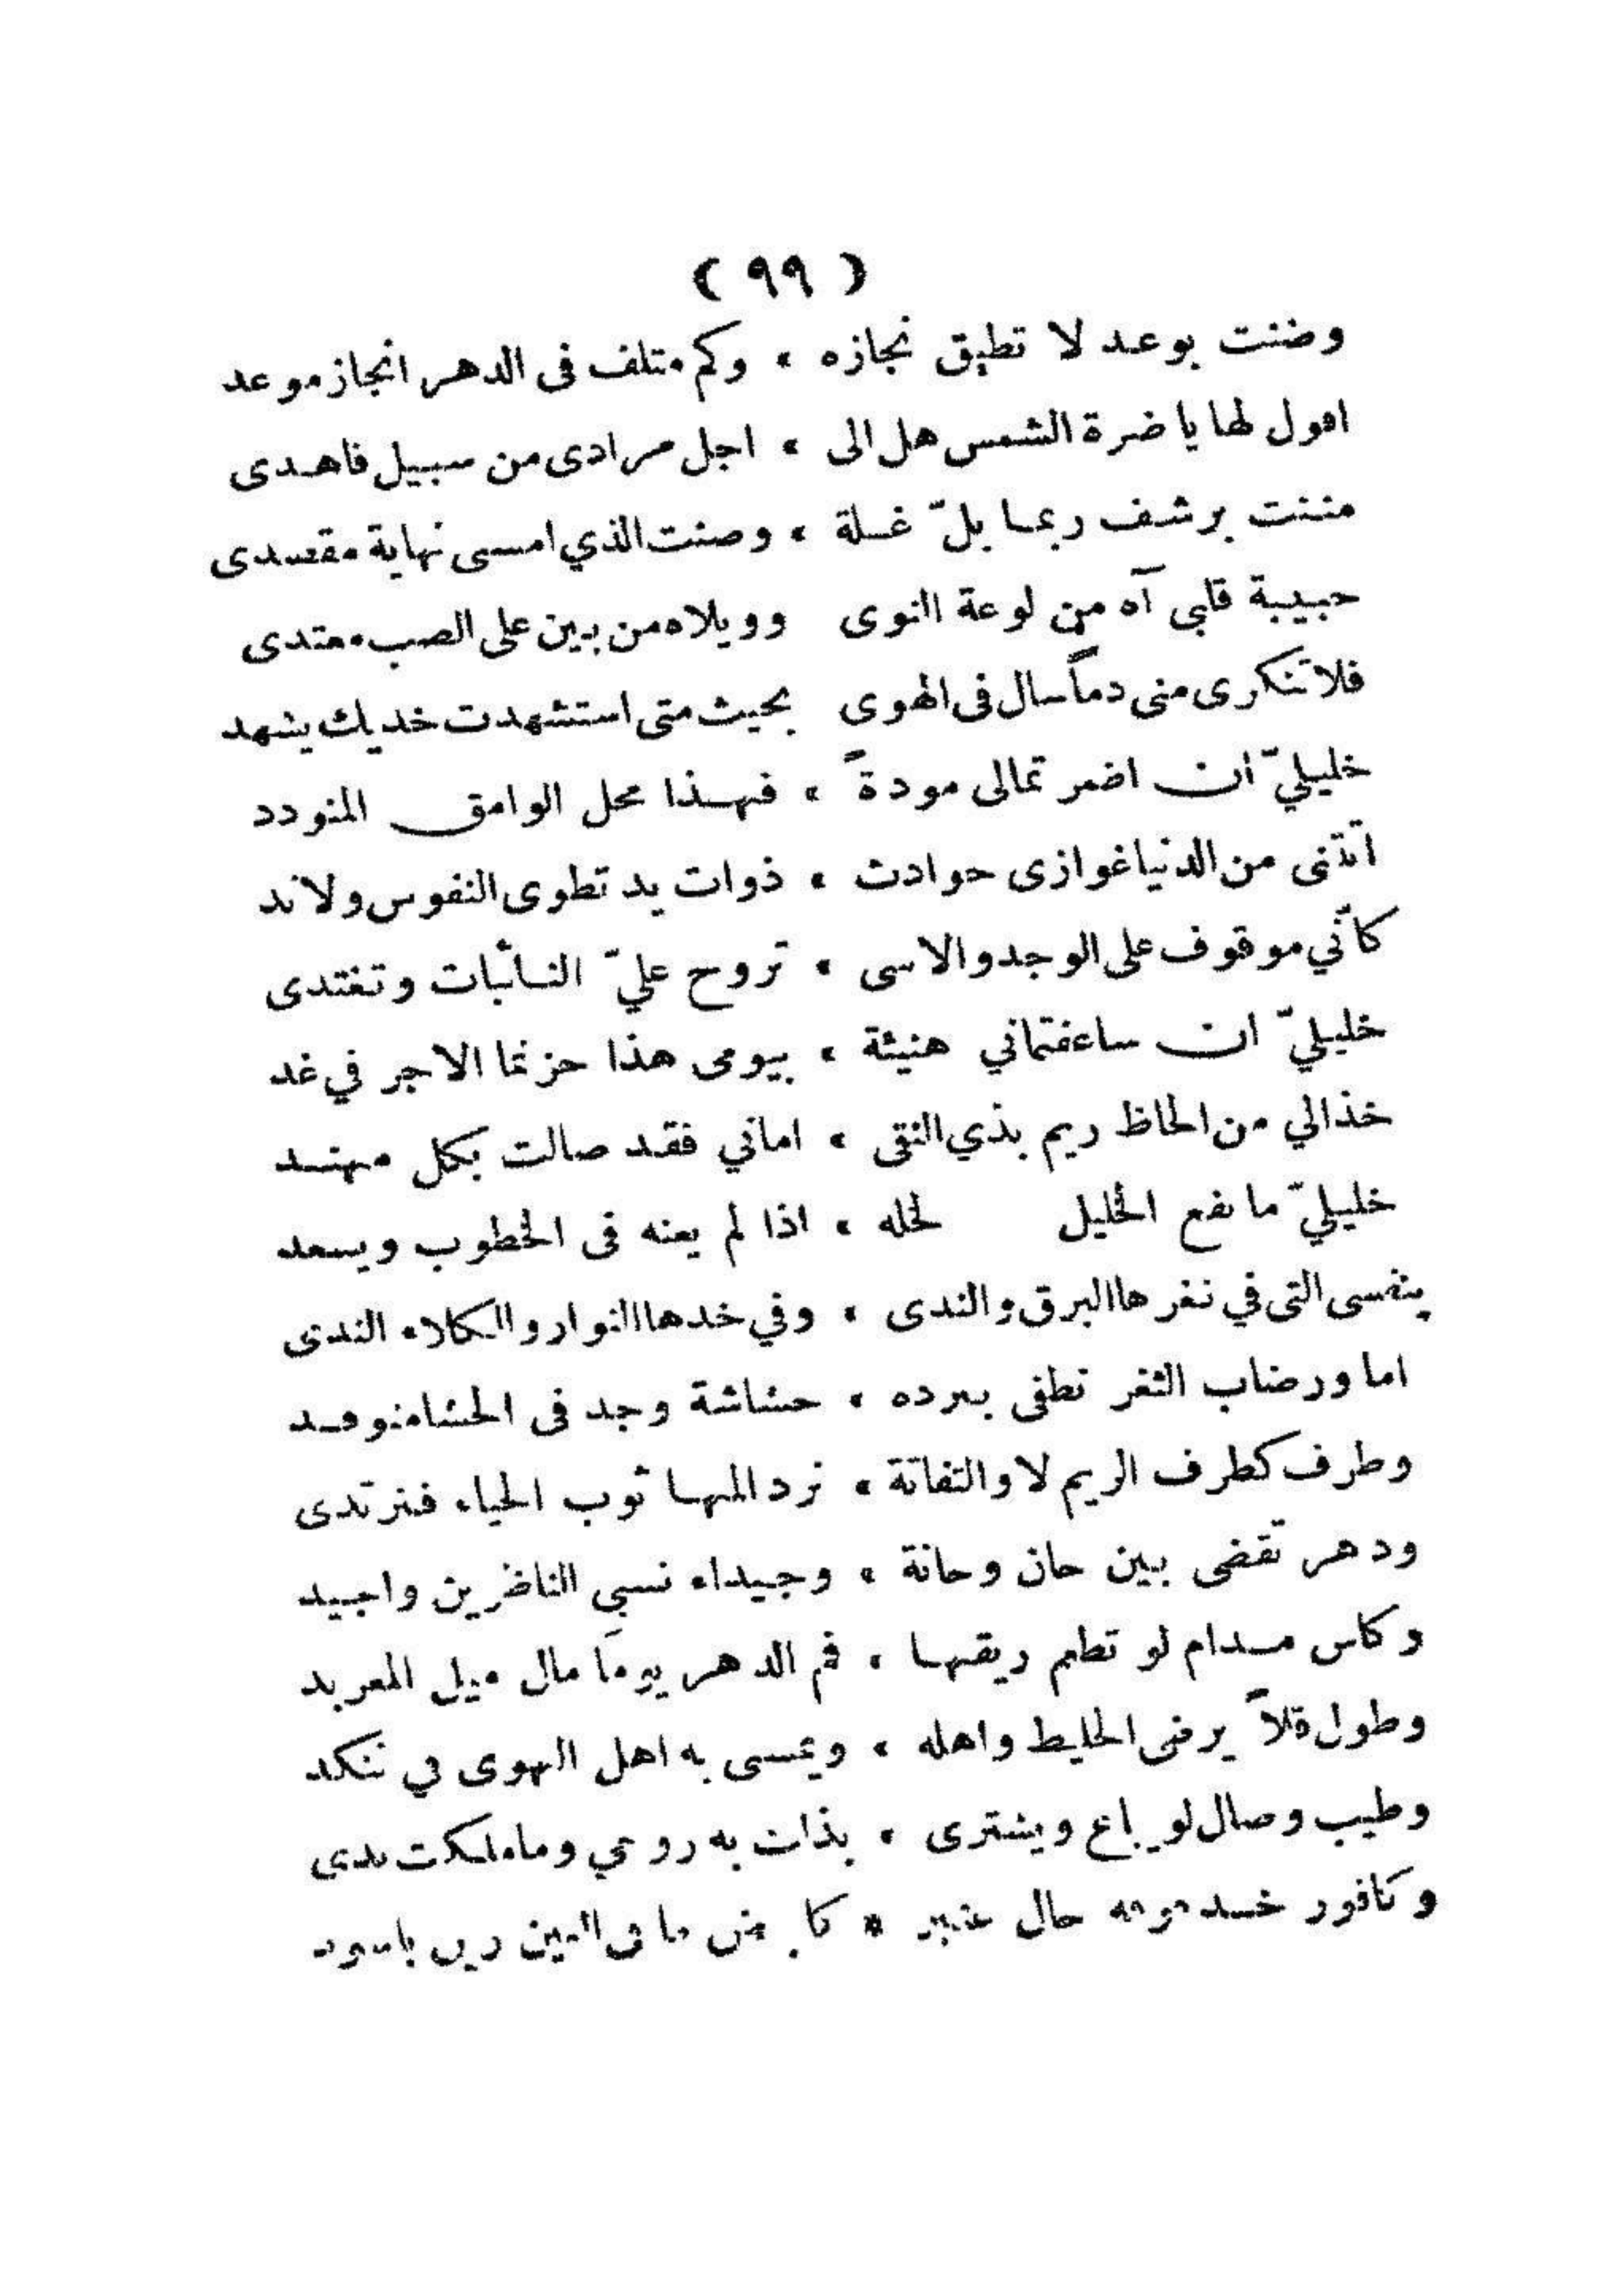 ( ٩٩ )
وضنت بوعد لا تطيق نجازه * وكم متلف فى الدهر انجاز موعد
اقول لها يا ضرة الشمس هل الى * اجل مرادى من سبيل فاهدى
مننت برشف ربما بلّ غلة * وصنت الذي امسى نهاية مقصدى
حبيبة قلبى آه من لوعة النوى وويلاه من بين على الصب معتدى
فلا تنكرى منى دماً سال فى الهوى بحيث متى استشهدت خديك يشهد
خليليّ ان اضمرتمالى مودة * فهذا محل الوامق المتودد
اتتنى من الدنيا غوازى حوادث * ذوات يد تطوى النفوس ولاند
كأني موقوف على الوجد والاسى * تروح عليّ النائبات وتغتدى
خليليّ ان ساعفتماني هنيئة * بيومى هذا حزتما الاجر في غد
خذالي من الحاظ ريم بذي النقى * اماني فقد صالت بكل مهند
خليليّ ما نفع الخليل لخله * اذا لم يعنه فى الخطوب ويسعد
بنفسى التى في ثغرها البرق والندى * وفي خدها النوار والكلاء الندى
اما ورضاب الثغر تطفى ببرده * حشاشة وجد فى الحشا متوقد
وطرف كطرف الريم لاوالتفاتة * ترد المها ثوب الحياء فترتدى
ودهر تقضى بين حان وحانة * وجيداء تسبي الناظرين واجيد
وكاس مدام لو تطعم ريقها * فم الدهر يوما مال ميل المعربد
وطول قلاً يرضى الخليط واهله * ويمسى به اهل الهوى في تنكد
وطيب وصال لو يباع ويشترى * بذلت به روحي وما ملكت يدى
وكافور خد فوقه خال عنبر * ما فى العين